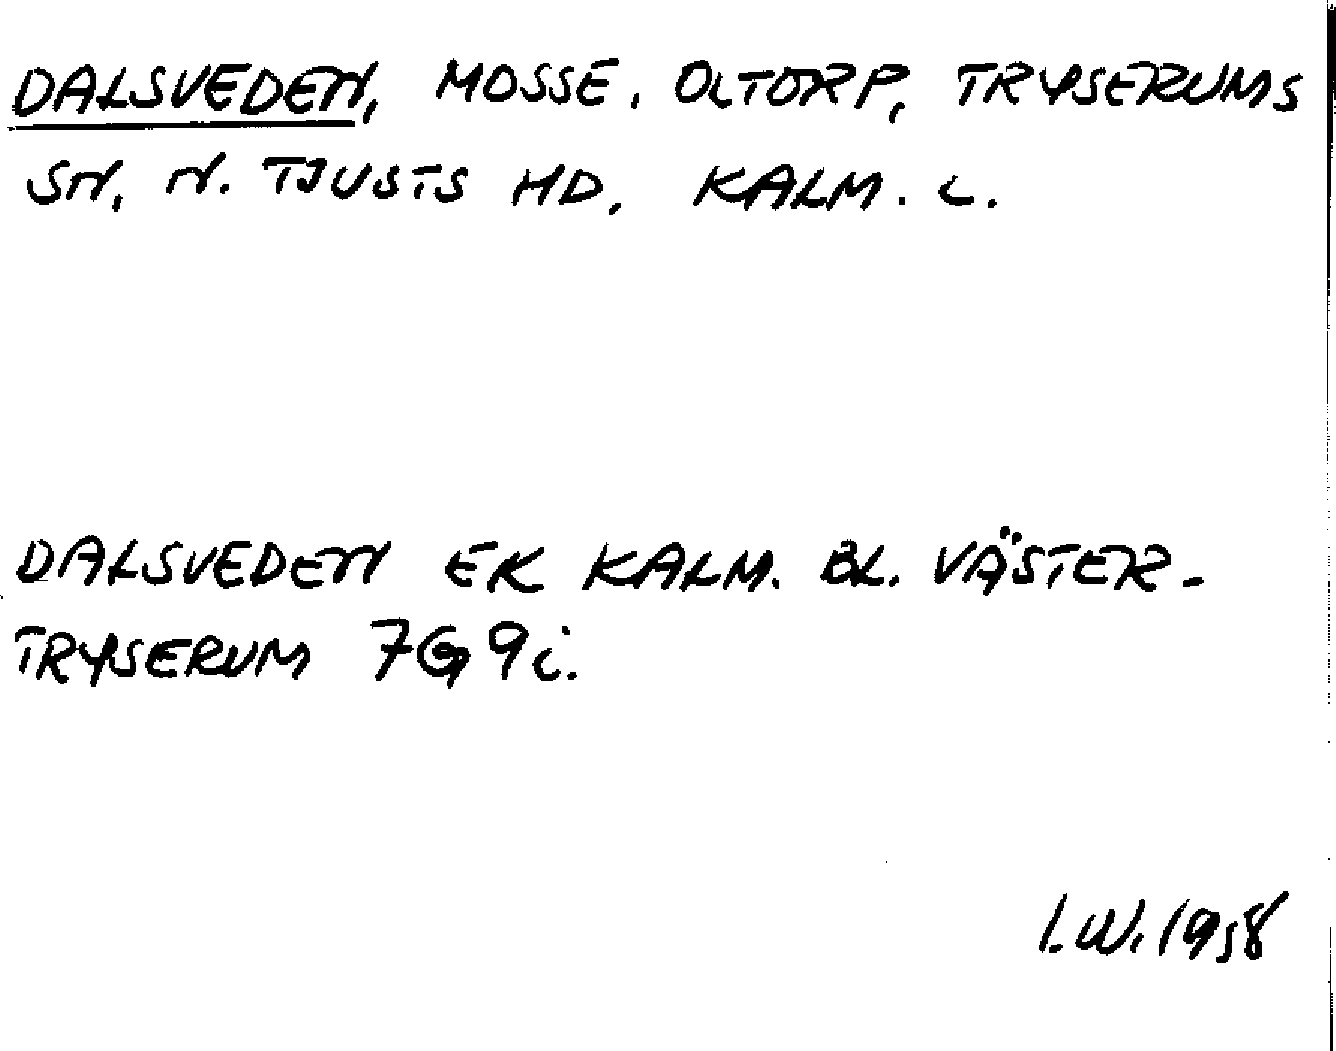 DALSVEDEN, MOSSE, OLTORP, TRYSERUMS
SN, N. TJUSTS HD, KALM. L.
DALSVEDEN EK KALM. BL. VÄSTER-
TRYSERUM 7G9i.
I.W. 1958